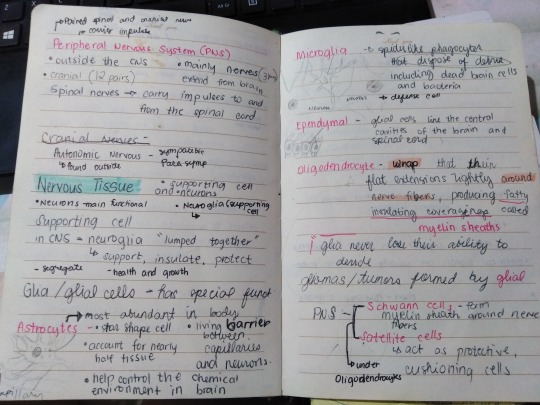 Paired spinal and cranial nerv
carries impulses
Peripheral Nervous System (PNS)
• outside the CNS • mainly nerves
• cranial (12 pairs) extend from brain
Spinal nerves → carry impulses to and
from the spinal cord
Cranial Nerves -
Autonomic Nervous - sympathetic
↳ found outside para symp
Nervous Tissue - supporting cell
and neurons
• Neurons main functional • Neuroglia (supporting cell
Supporting cell
in CNS = neuroglia "lumped together"
↳ support, insulate, protect
- segregate - health and growth
Glia/glial cells - has special funct
→ most abundant in body
Astrocytes - • star shape cell • living barrier
• account for nearly between
half tissue capillaries
and neurons.
• help control the chemical
environment in brain
capillaries
Microglia - spiderlike phagocytes
that dispose of debris
including dead brain cells
and bacteria
Neuron
→ defense cell
Ependymal - glial cells line the central
cavities of the brain and
spinal cord
Oligodendrocyte - wrap that their
flat extensions tightly around
nerve fibers, producing fatty
insulating coverings called
myelin sheaths
glia never lose their ability to
divide
gliomas/tumors formed by glial
PNS - Schwann cells - form
myelin sheath around nerve
fibers
Satellite cells
↳ act as protective,
cushioning cells
→ under
Oligodendrocytes